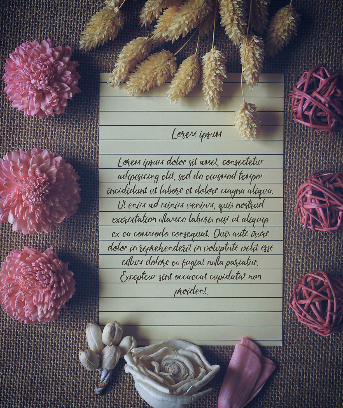 Lorem ipsum
Lorem ipsum dolor sit amet, consectetur
adipiscing elit, sed do eiusmod tempor
incididunt ut labore et dolore magna aliqua.
Ut enim ad minim veniam, quis nostrud
exercitation ullamco laboris nisi ut aliquip
ex ea commodo consequat. Duis aute irure
dolor in reprehenderit in voluptate velit esse
cillum dolore eu fugiat nulla pariatur.
Excepteur sint occaecat cupidatat non
proident!